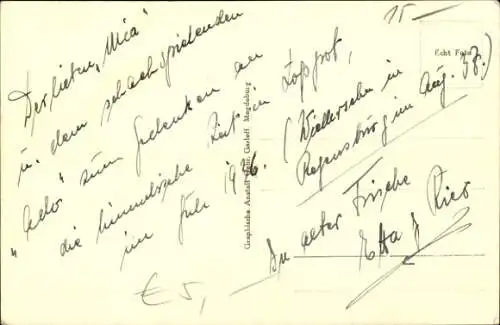 Der lieben "Mia"
u. dem schachspielenden
"Ado" zum Gedenken an
die himmlische Zeit in
im Juli 1936.
(Wiedersehn in
Regensburg im Aug. 37.)
In alter Frische
Etta & Rico
15 —
€ 5,—
Echt Foto
Graphische Anstalt Gerloff, Magdeburg